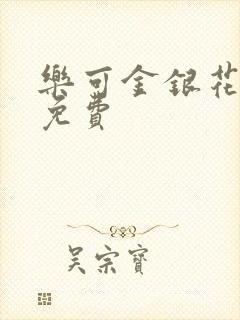 樂可金銀花
免費
吴宗寳